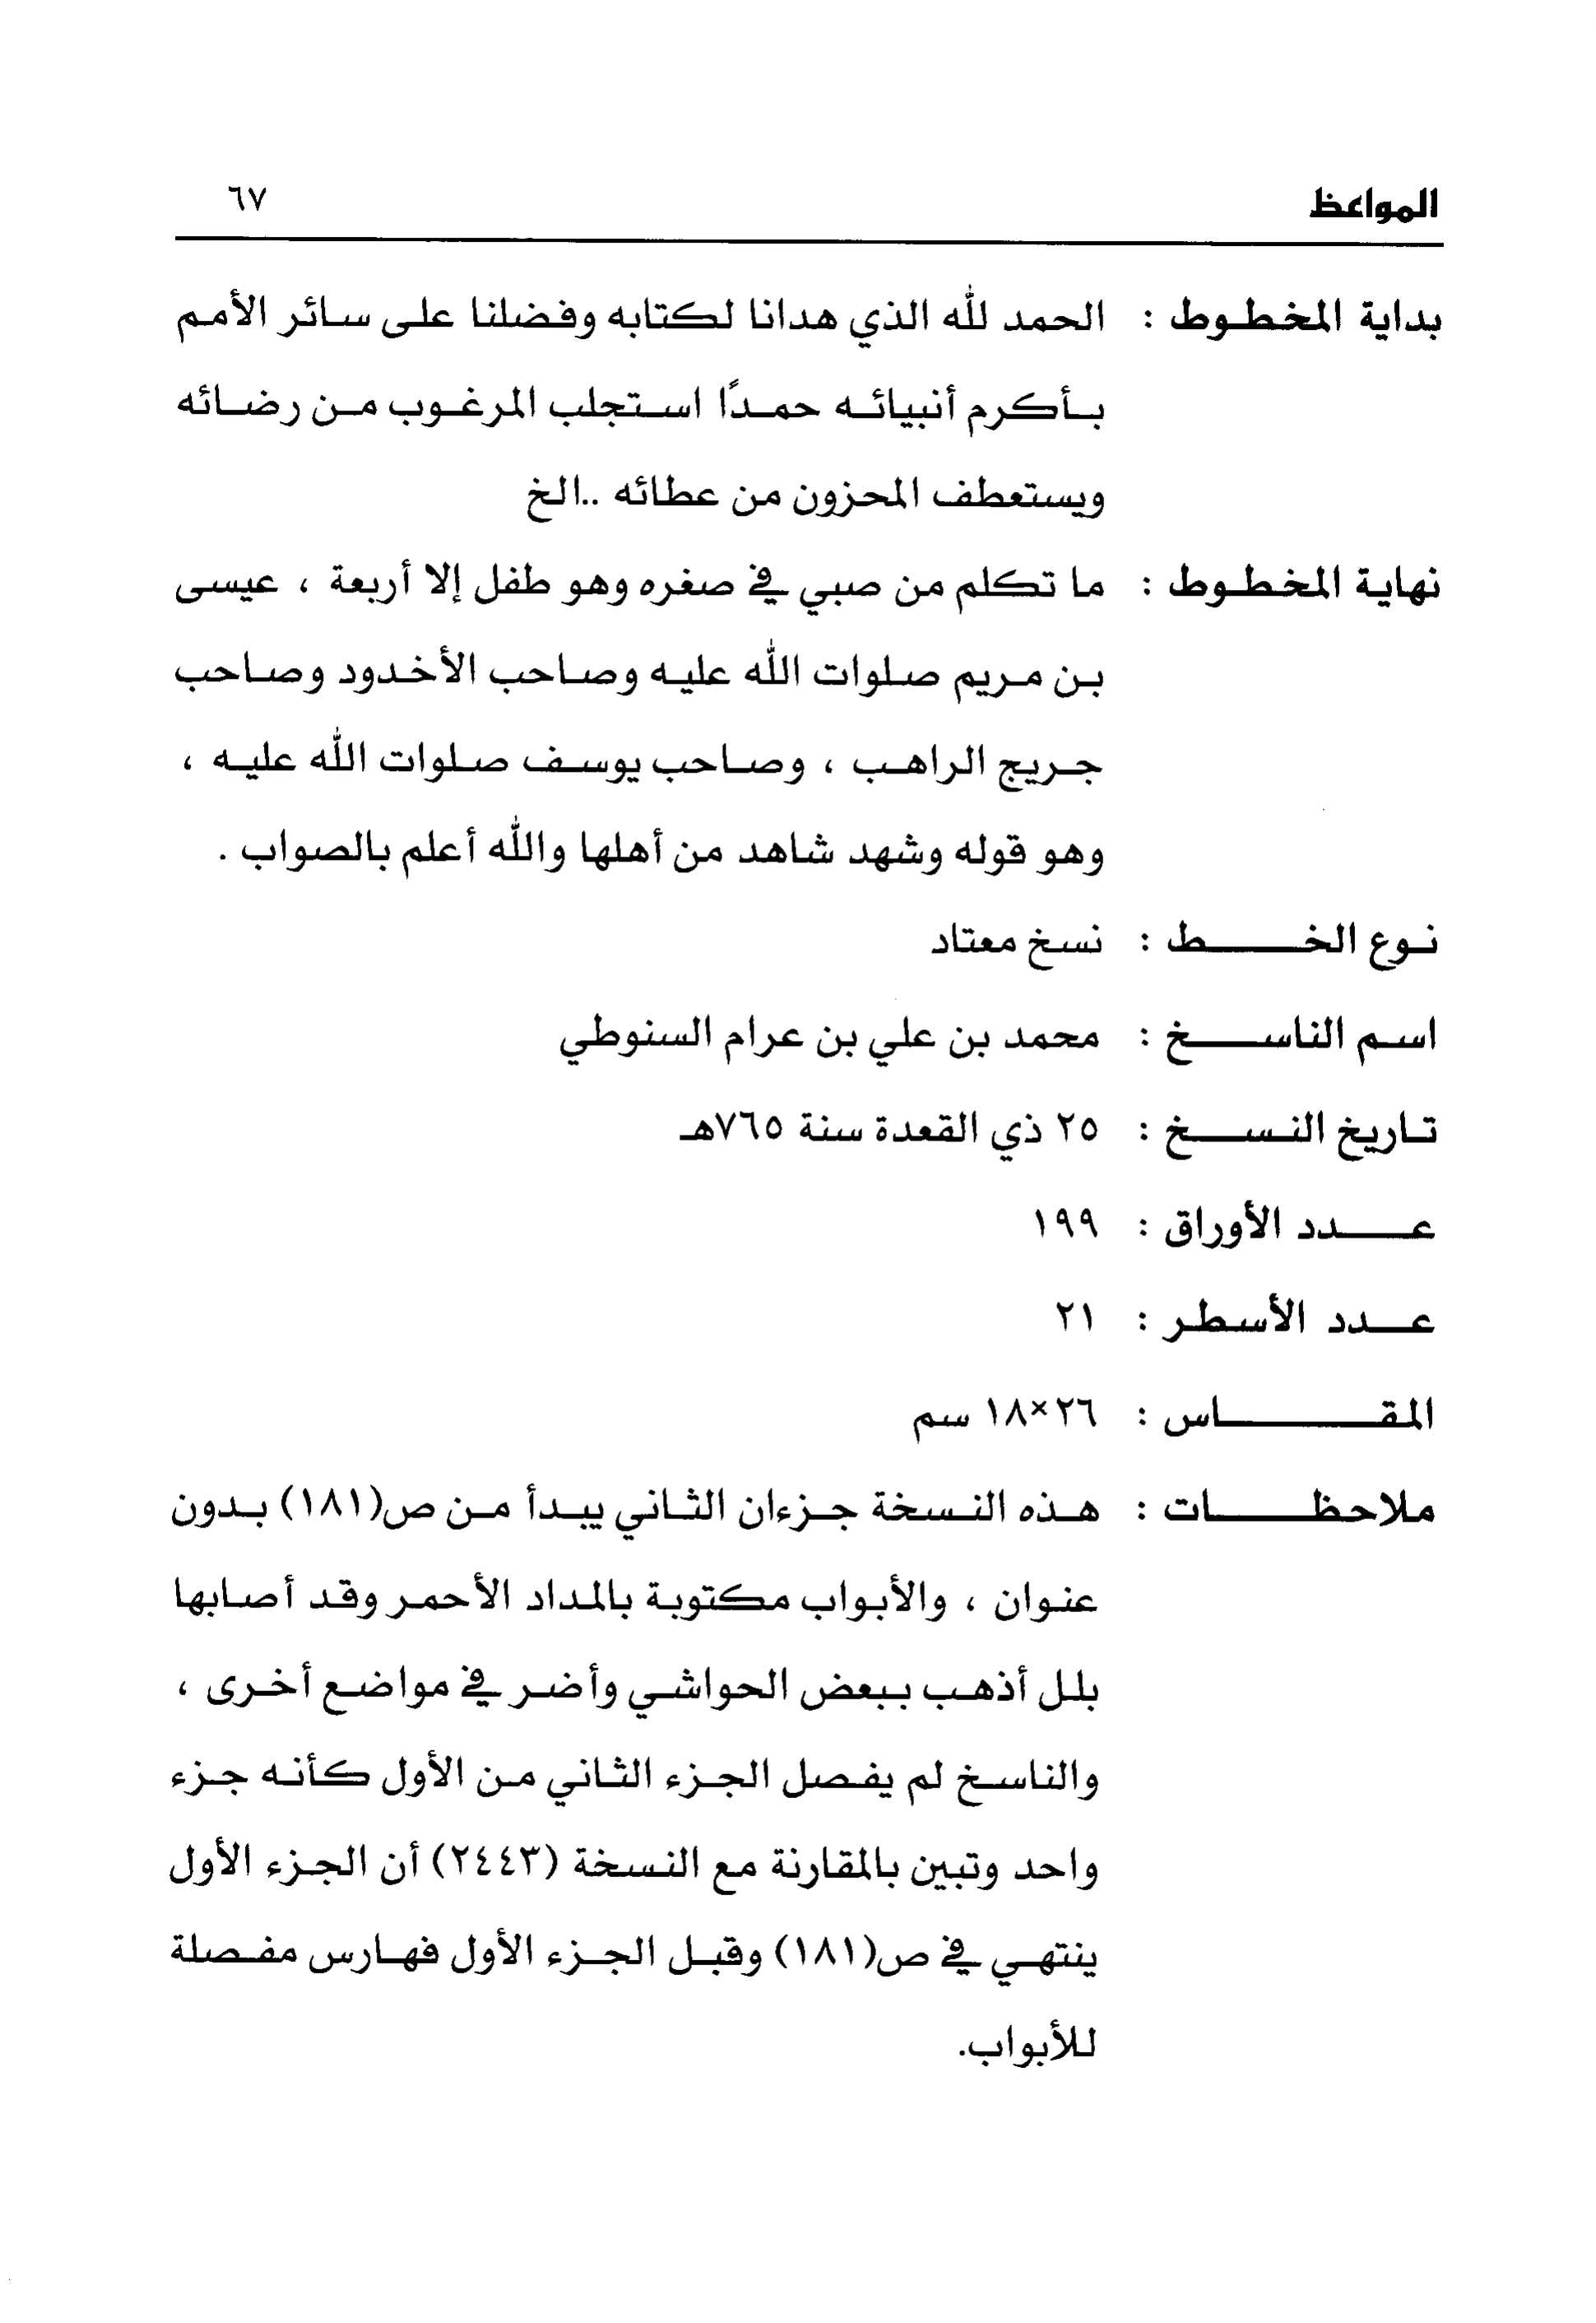 المواعظ ٦٧
بداية المخطوط : الحمد لله الذي هدانا لكتابه وفضلنا على سائر الأمم
بأكرم أنبيائه حمدًا استجلب المرغوب من رضائه
ويستعطف المحزون من عطائه ..الخ
نهاية المخطوط : ما تكلم من صبي في صغره وهو طفل إلا أربعة ، عيسى
بن مريم صلوات الله عليه وصاحب الأخدود وصاحب
جريج الراهب ، وصاحب يوسف صلوات الله عليه ،
وهو قوله وشهد شاهد من أهلها والله أعلم بالصواب .
نوع الخط : نسخ معتاد
اسم الناسخ : محمد بن علي بن عرام السنوطي
تاريخ النسخ : ٢٥ ذي القعدة سنة ٧٦٥هـ
عدد الأوراق : ١٩٩
عدد الأسطر : ٢١
المقاس : ٢٦×١٨ سم
ملاحظات : هذه النسخة جزءان الثاني يبدأ من ص(١٨١) بدون
عنوان ، والأبواب مكتوبة بالمداد الأحمر وقد أصابها
بلل أذهب ببعض الحواشي وأضر في مواضع أخرى ،
والناسخ لم يفصل الجزء الثاني من الأول كأنه جزء
واحد وتبين بالمقارنة مع النسخة (٢٤٤٣) أن الجزء الأول
ينتهي في ص(١٨١) وقبل الجزء الأول فهارس مفصلة
للأبواب.